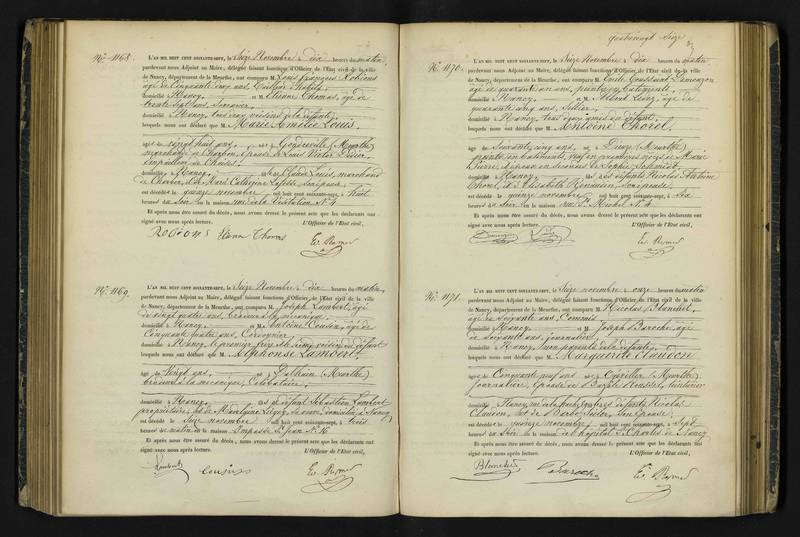 No. 1168.
L'AN MIL HUIT CENT SOIXANTE-SEPT, le Seize Novembre à dix heures du matin,
pardevant nous Adjoint au Maire, délégué faisant fonctions d'Officier de l'Etat civil de la ville
de Nancy, département de la Meurthe, ont comparu M. Louis François
âgé de Cinquante cinq ans,
domicilié à Nancy et M. Etienne Thomas, âgé de
trente sept ans, Serrurier
domicilié à Nancy, tous deux voisins de la défunte,
lesquels nous ont déclaré que M. Marie Amélie Louis,
âgée de vingt huit ans, née à Gondreville (Meurthe)
marchande de Charbon, épouse de Louis Victor Didier,
empailleur de Chaises,
domiciliée à Nancy, Claude Louis, marchand
de Charbon, et de Marie Catherine Lafosse son épouse,
est décédée le quinze novembre mil huit cent soixante-sept, à huit
heures du Soir en la maison rue de la Visitation No. 4
Et après nous être assuré du décès, nous avons dressé le présent acte que les déclarants ont
signé avec nous après lecture. L'Officier de l'Etat civil,
Thomas
No. 1169.
L'AN MIL HUIT CENT SOIXANTE-SEPT, le Seize Novembre à dix heures du matin,
pardevant nous Adjoint au Maire, délégué faisant fonctions d'Officier de l'Etat civil de la ville
de Nancy, département de la Meurthe, ont comparu M. Joseph Lambert, âgé
de vingt quatre ans, brodeur à la mécanique,
domicilié à Nancy et M. Antoine Cousin, âgé de
Cinquante quatre ans, Cordonnier,
domicilié à Nancy, le premier frère et le voisin du défunt
lesquels nous ont déclaré que M. Alphonse Lambert,
âgé de vingt ans, né à (Meurthe)
brodeur à la mécanique, Célibataire,
domicilié à Nancy, fils de défunt Sébastien Lambert
propriétaire, et de Madelaine sa veuve, domiciliée à Nancy,
est décédé le Seize novembre mil huit cent soixante-sept, à trois
heures du matin en la maison Impasse St. Jean No. 16
Et après nous être assuré du décès, nous avons dressé le présent acte que les déclarants ont
signé avec nous après lecture. L'Officier de l'Etat civil,
Lambert Cousin
Seize
No. 1170.
L'AN MIL HUIT CENT SOIXANTE-SEPT, le Seize Novembre à dix heures du matin,
pardevant nous Adjoint au Maire, délégué faisant fonctions d'Officier de l'Etat civil de la ville
de Nancy, département de la Meurthe, ont comparu M.
âgé de quarante un ans, peintre en bâtiments,
domicilié à Nancy et M. Albert âgé de
quarante cinq ans, Sellier,
domicilié à Nancy, tous deux amis du défunt,
lesquels nous ont déclaré que M. Antoine Thorel,
âgé de Soixante cinq ans, né à Dieuze (Meurthe)
peintre en bâtiments, veuf en premières noces de Marie
Pierre, et époux en secondes de Sophie
domicilié à Nancy, fils des défunts Nicolas Antoine
Thorel, et d'Elisabeth son épouse,
est décédé le quinze novembre mil huit cent soixante-sept, à Six
heures du Soir en la maison rue St. Michel No. 4.
Et après nous être assuré du décès, nous avons dressé le présent acte que les déclarants ont
signé avec nous après lecture. L'Officier de l'Etat civil,
No. 1171.
L'AN MIL HUIT CENT SOIXANTE-SEPT, le Seize novembre à onze heures du matin
pardevant nous Adjoint au Maire, délégué faisant fonctions d'Officier de l'Etat civil de la ville
de Nancy, département de la Meurthe, ont comparu M. Nicolas Blanchet,
âgé de Soixante ans, Commis,
domicilié à Nancy et M. Joseph Baroche, âgé
de Soixante ans, journalier,
domicilié à Nancy, non parents de la défunte,
lesquels nous ont déclaré que M. Marguerite Claudon
âgée de Cinquante neuf ans, née à (Meurthe)
Journalière, épouse de Joseph
domiciliée à Nancy, défunts Nicolas
Claudon, et de Barbe son épouse,
est décédée le quinze novembre mil huit cent soixante-sept, à Sept
heures du Soir en la maison de l'hôpital St. Charles de Nancy
Et après nous être assuré du décès, nous avons dressé le présent acte que les déclarants ont
signé avec nous après lecture. L'Officier de l'Etat civil,
Blanchet Baroche